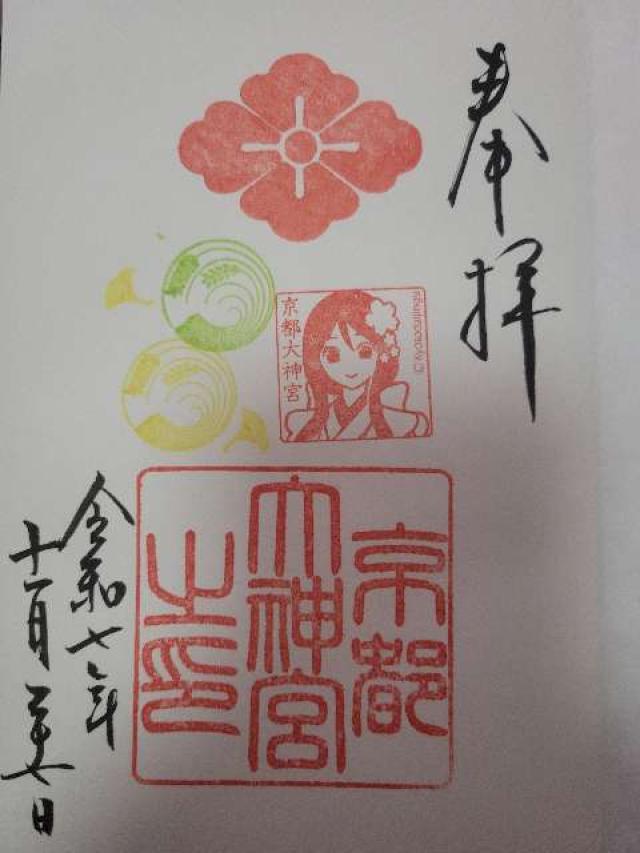 奉拝
京都大神宮
京都
大神宮
之印
令和七年
十一月二十七日